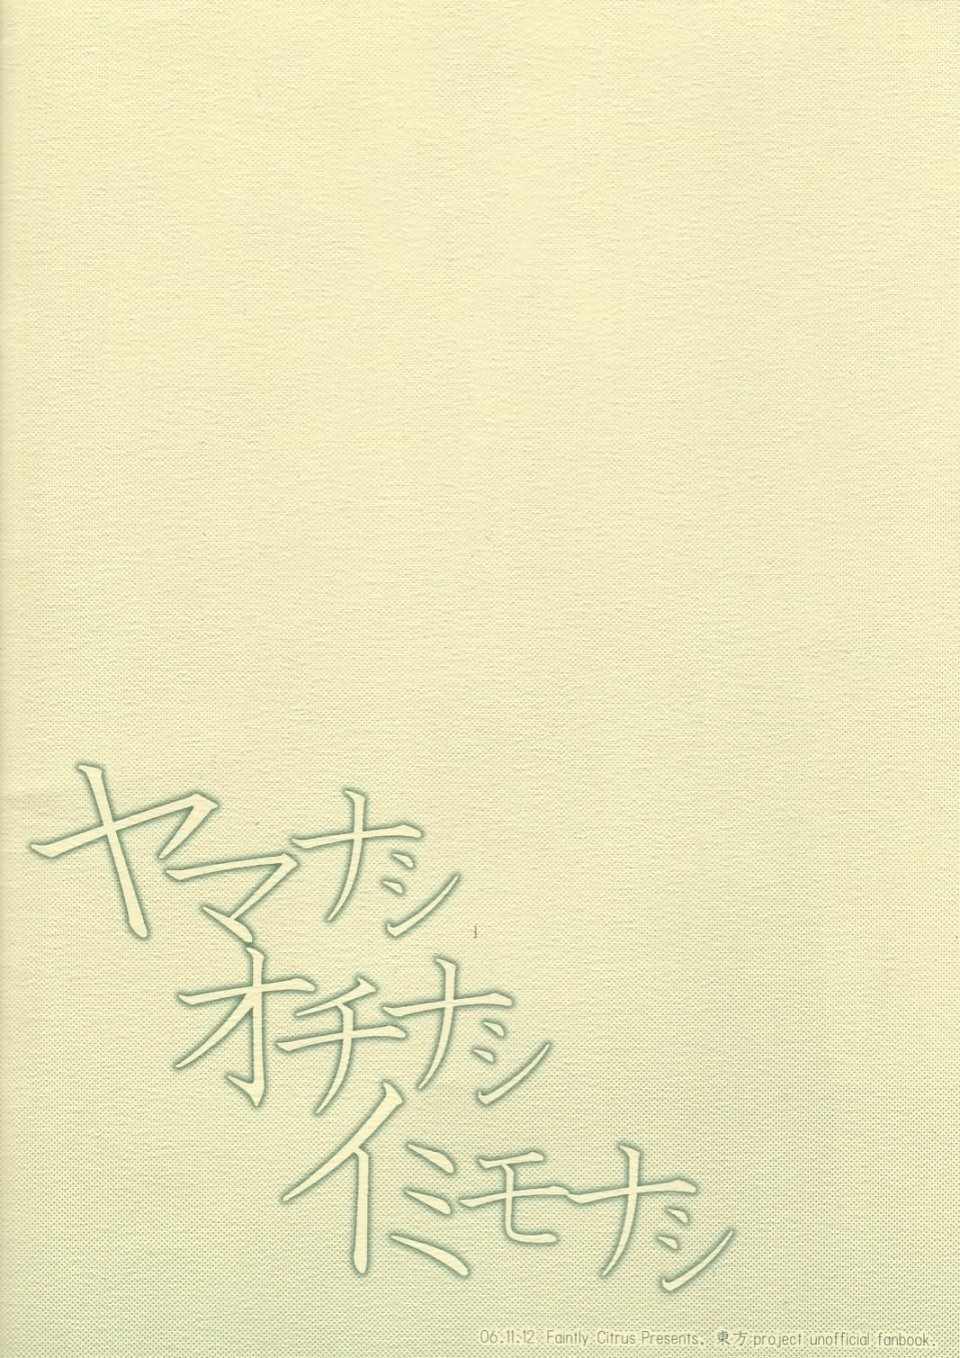 ヤマナシ
オチナシ
イミモナシ
06.11.12 Faintly Citrus Presents. 東方project unofficial fanbook.